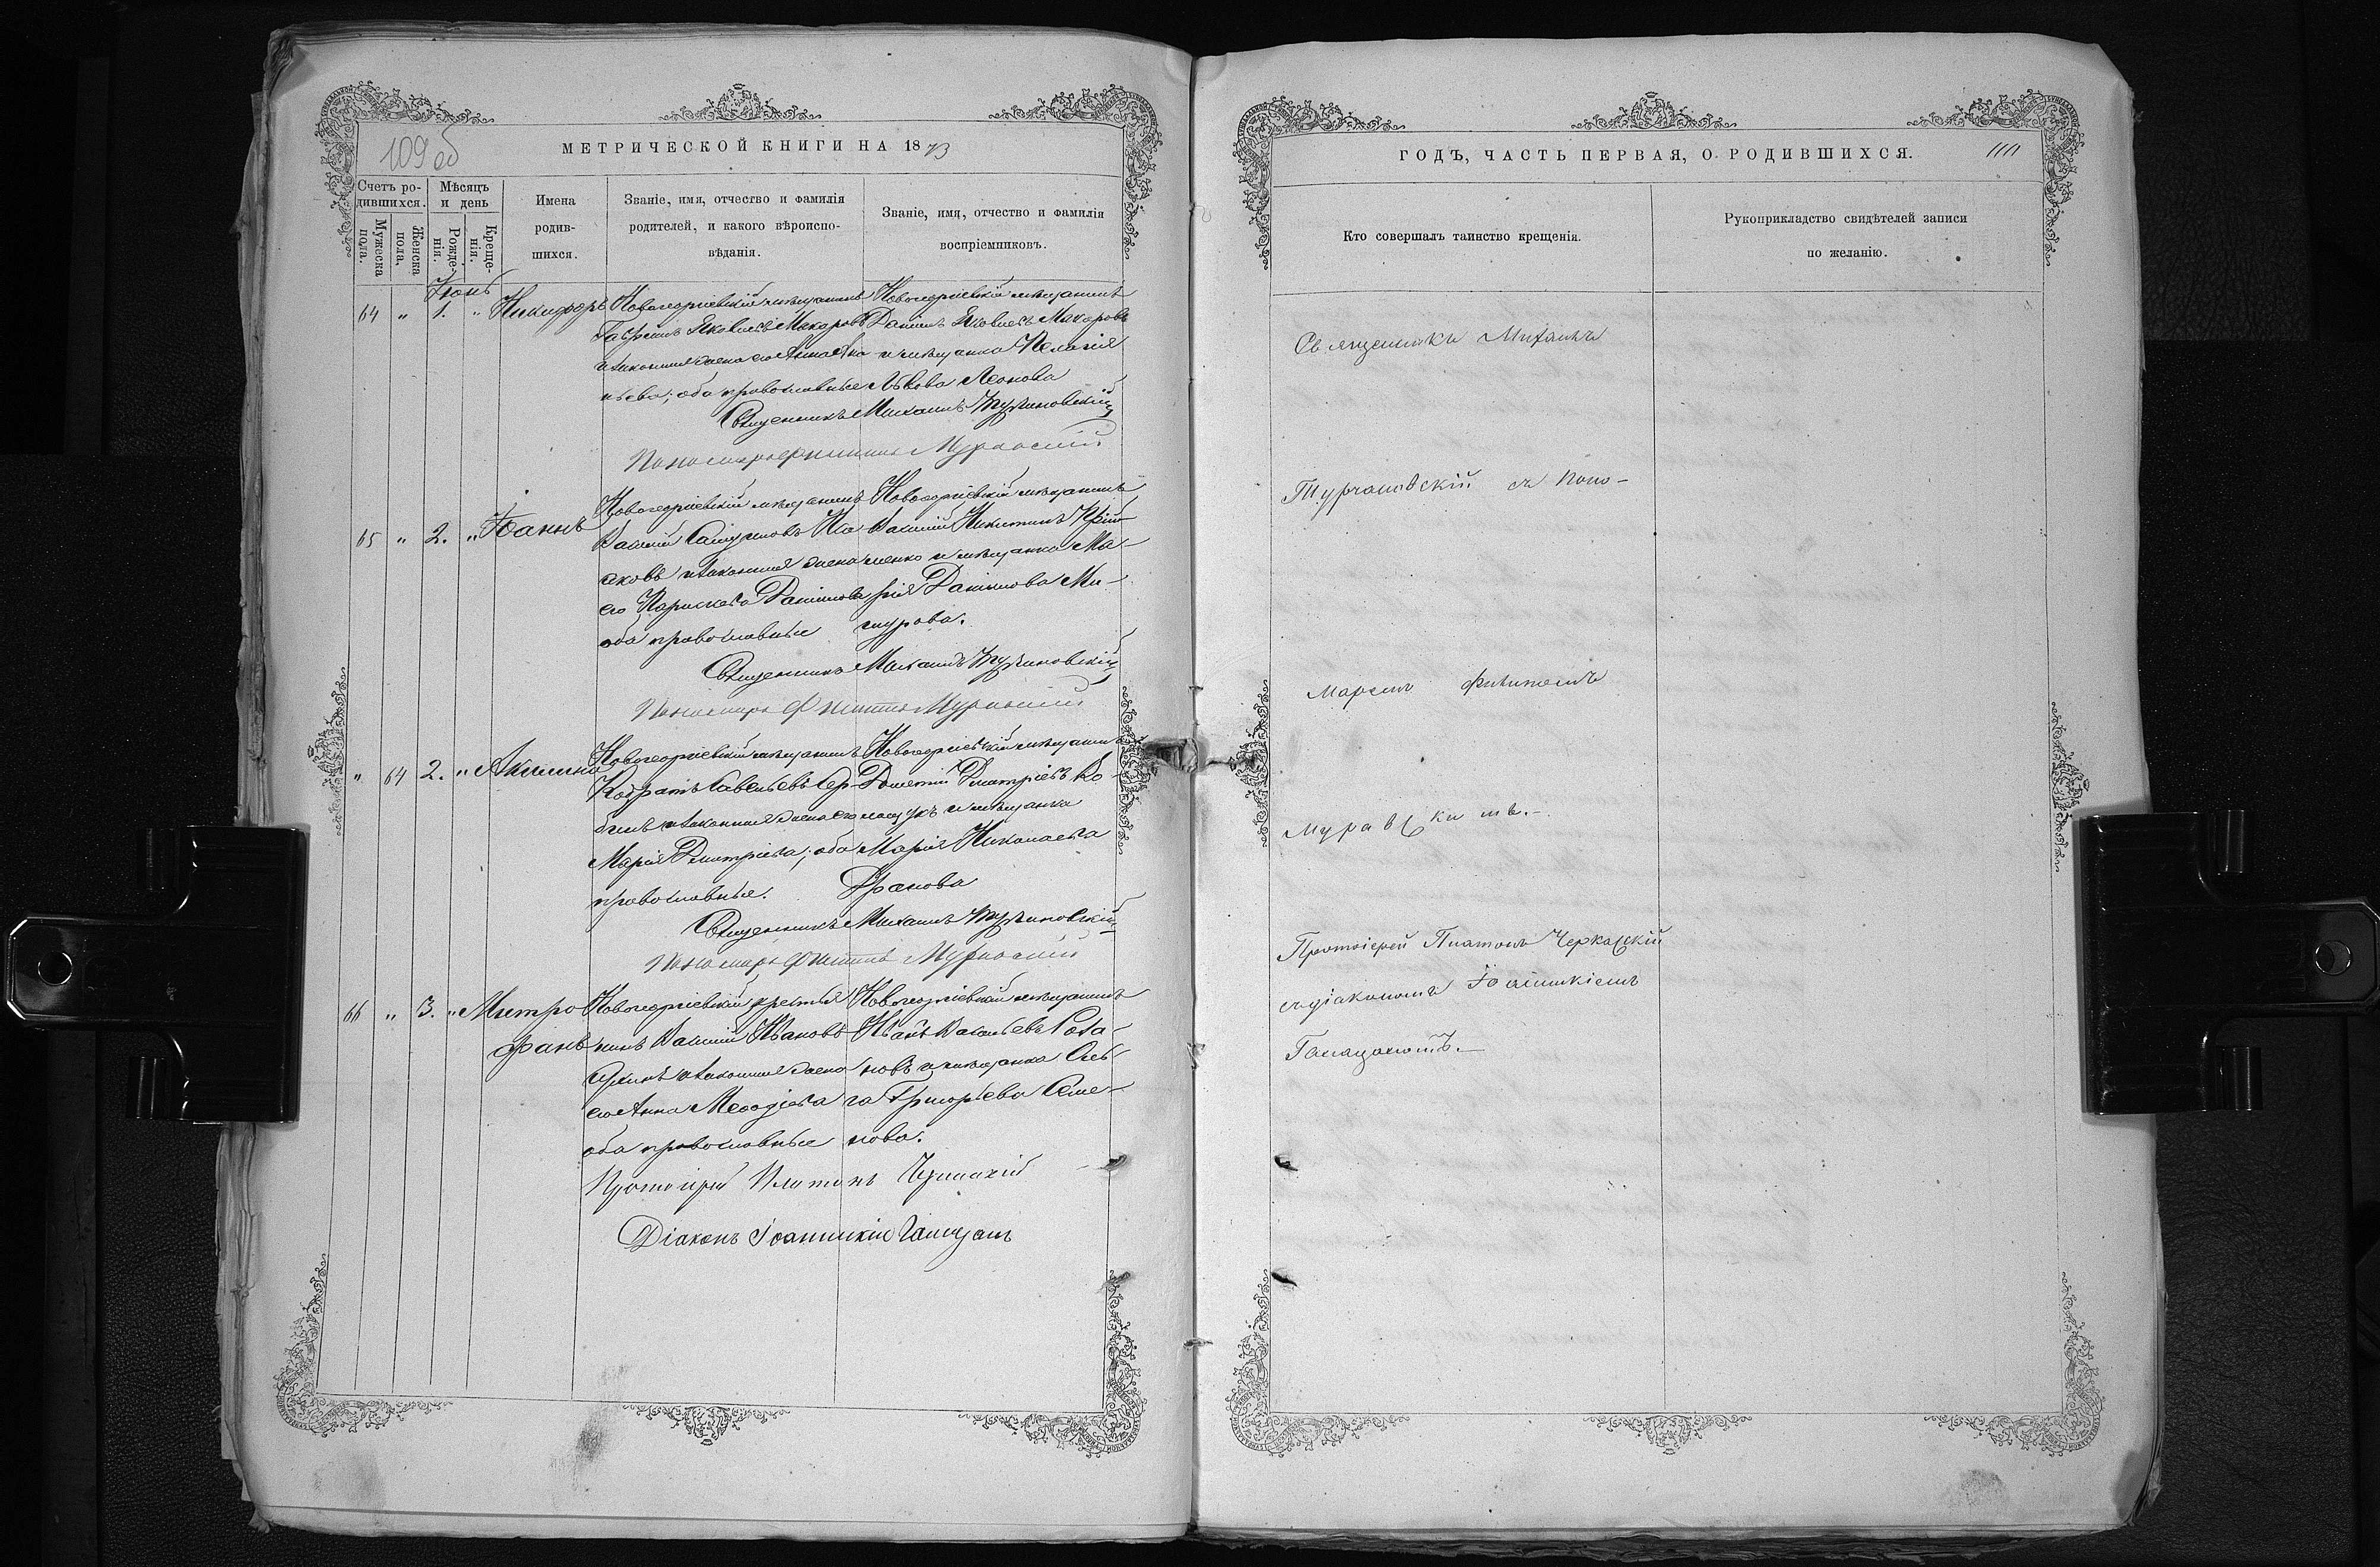 109 об
МЕТРИЧЕСКОЙ КНИГИ НА 1873
Счетъ ро-
дившихся.
Мужеска
пола.
Женска
пола.
Мѣсяцъ
и день
Рожде-
нія.
Креще-
нія.
Имена
родив-
шихся.
Званіе, имя, отчество и фамилія
родителей, и какого вѣроиспо-
вѣданія.
Званіе, имя, отчество и фамилія
воспріемниковъ.
Іюнь
64 " 1. " Никифоръ
Новогеоргіевскій мѣщанинъ
Гавріилъ Яковлевъ Макаровъ
и законная жена его Анна
оба православные
Новогеоргіевскій мѣщанинъ
Даніилъ Яковлевъ Макаровъ
и мѣщанка Пелагія
Львова Леонова
Священникъ Михаилъ Турчановскій
Пономарь Филиппъ Муравскій
65 " 2. " Іоаннъ
Новогеоргіевскій мѣщанинъ
Василій
и законная жена
его Параскева Даніилова
оба православные
Новогеоргіевскій мѣщанинъ
Василій Никитинъ
менко и мѣщанка Ма-
рія Даніилова Ми-
шурова.
Священникъ Михаилъ Турчановскій
Пономарь Филиппъ Муравскій
" 64 2. " Акилина
Новогеоргіевскій мѣщанинъ
Кодратъ Савельевъ Сер-
бинъ и законная жена его
Марія Димитріева; оба
православные.
Новогеоргіевскій мѣщанинъ
Дометій Димитріевъ Ко-
и мѣщанка
Марія Николаева
Дранова
Священникъ Михаилъ Турчановскій
Пономарь Филиппъ Муравскій
66 " 3. " Митро-
фанъ
Новогеоргіевскій крестья-
нинъ Василій Ивановъ
и законная жена
его Анна Меѳодіева
оба православные
Новогеоргіевскій мѣщанинъ
Иванъ Васильевъ
новъ и мѣщанка Оль-
га Григорьева Семе-
нова.
Протоіерей Платонъ Черкасскій
Діаконъ Іоанникій
ГОДЪ, ЧАСТЬ ПЕРВАЯ, О РОДИВШИХСЯ.
Кто совершалъ таинство крещенія.
Рукоприкладство свидѣтелей записи
по желанію.
Священникъ Михаилъ
Турчановскій съ поно-
маремъ Филиппомъ
Муравскимъ.-
Протоіерей Платонъ Черкасскій
съ діакономъ Іоанникіемъ